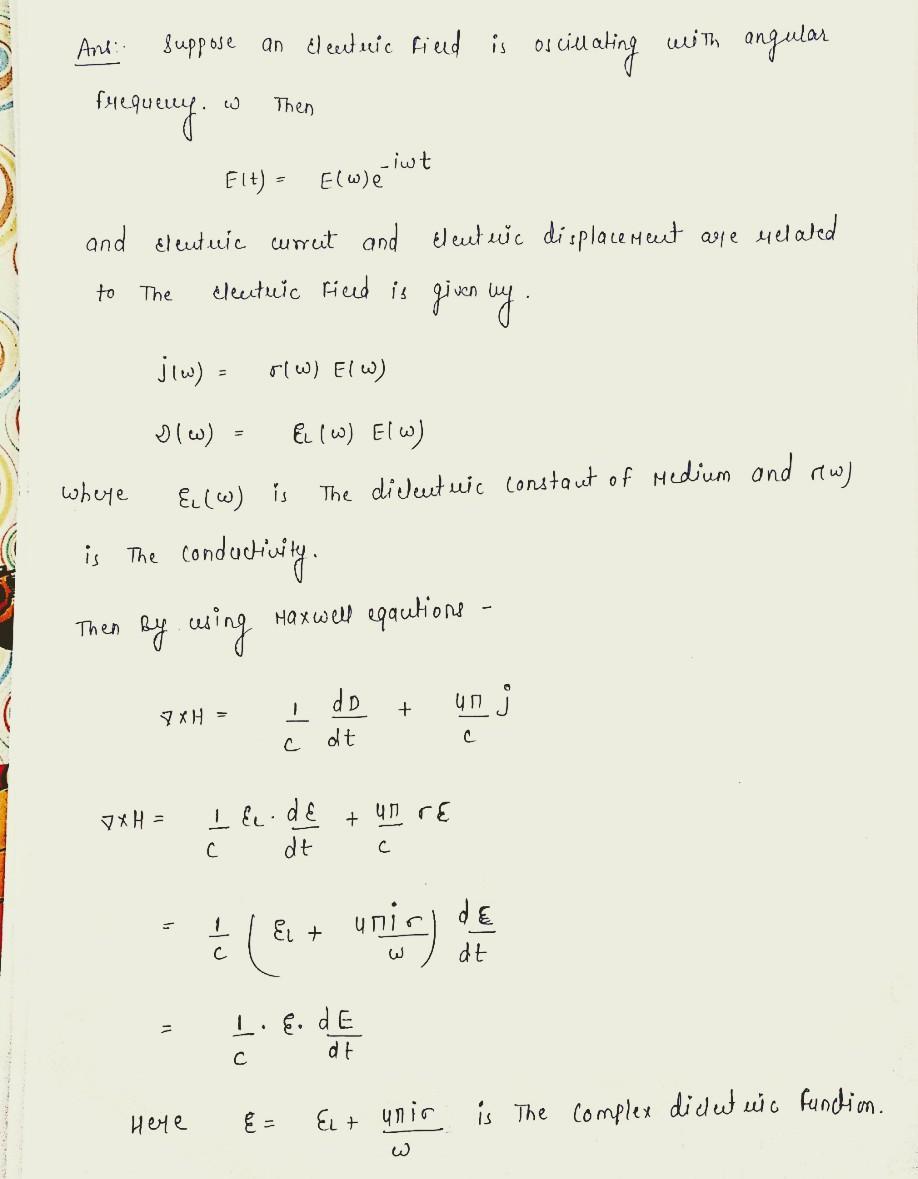 Ans:- Suppose an electric field is oscillating with angular
frequency. ω Then
E(t) = E(ω)e^-iωt
and electric currut and electric displacement are related
to The electric field is given by.
j(ω) = σ(ω) E(ω)
D(ω) = ℇL(ω) E(ω)
where ℇL(ω) is The dielectric constant of Medium and σ(ω)
is The conductivity.
Then By using Maxwell eqautions -
∇×H = 1/c dD/dt + 4π/c j
∇×H = 1/c ℇL. dE/dt + 4π/c σE
= 1/c (ℇL + 4πiσ/ω) dE/dt
= 1/c . ℇ. dE/dt
Here ℇ = ℇL + 4πiσ/ω is The Complex dielectric function.